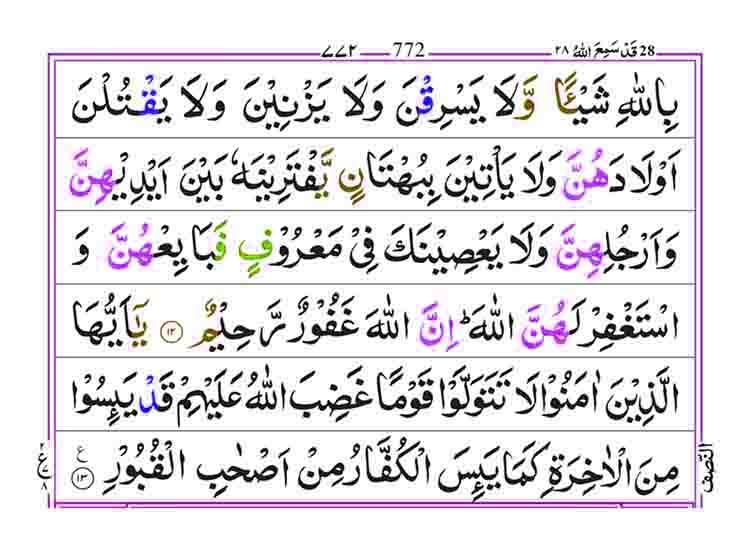 28 قَدْ سَمِعَ اللّٰهُ ۲۸ 772 ۷۷۲
بِاللّٰهِ شَيْـًٔا وَّلَا يَسْرِقْنَ وَلَا يَزْنِيْنَ وَلَا يَقْتُلْنَ
اَوْلَادَهُنَّ وَلَا يَاْتِيْنَ بِبُهْتَانٍ يَّفْتَرِيْنَهٗ بَيْنَ اَيْدِيْهِنَّ
وَاَرْجُلِهِنَّ وَلَا يَعْصِيْنَكَ فِيْ مَعْرُوْفٍ فَبَايِعْهُنَّ وَ
اسْتَغْفِرْ لَهُنَّ اللّٰهَ ؕ اِنَّ اللّٰهَ غَفُوْرٌ رَّحِيْمٌ ۝۱۲ يٰۤاَيُّهَا
الَّذِيْنَ اٰمَنُوْا لَا تَتَوَلَّوْا قَوْمًا غَضِبَ اللّٰهُ عَلَيْهِمْ قَدْ يَئِسُوْا
مِنَ الْاٰخِرَةِ كَمَا يَئِسَ الْكُفَّارُ مِنْ اَصْحٰبِ الْقُبُوْرِ ۝۱۳ ع
النّصف
۲ ع ۸